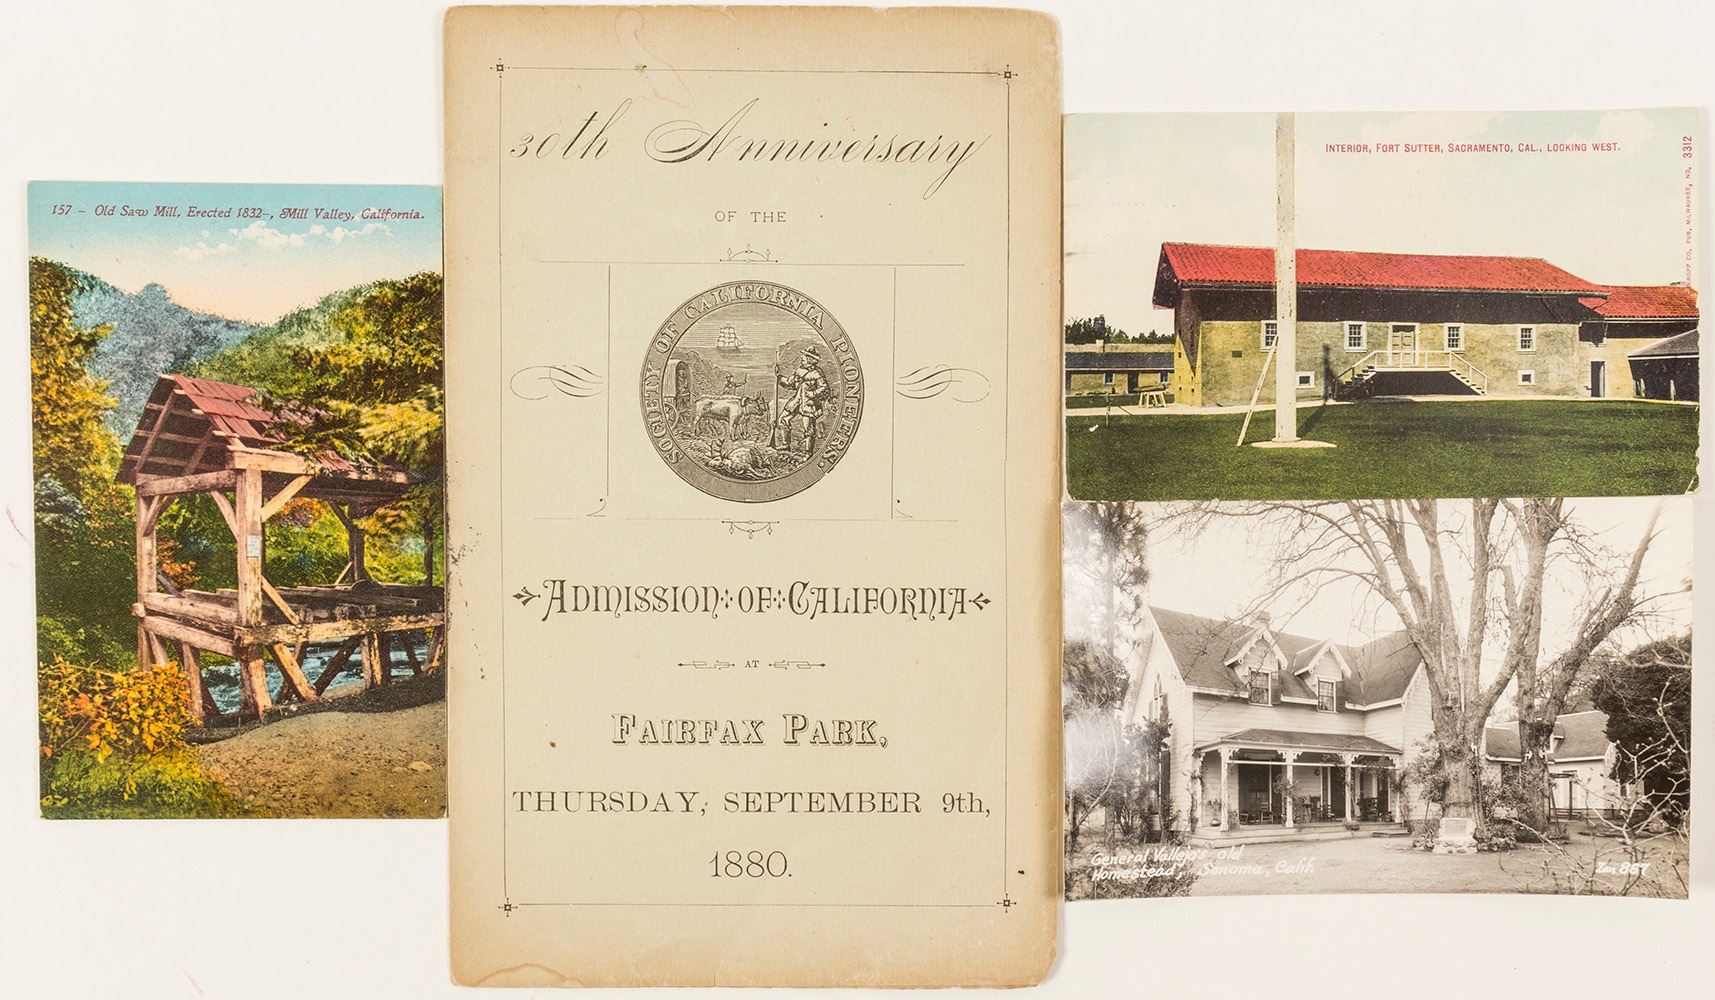 157 – Old Saw Mill, Erected 1832–, Mill Valley, California.
30th Anniversary
OF THE
SOCIETY OF CALIFORNIA PIONEERS.
ADMISSION OF CALIFORNIA
AT
FAIRFAX PARK,
THURSDAY, SEPTEMBER 9th,
1880.
INTERIOR, FORT SUTTER, SACRAMENTO, CAL., LOOKING WEST.
KROPP CO., PUB., MILWAUKEE, NO. 3312
General Vallejo's old
Homestead, Sonoma, Calif.
Zan 867